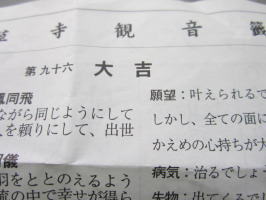 寺観音籤
第九十六 大吉
鳳同飛
ながら同じようにして
を頼りにして、出世
羽をととのえるよう
の中で幸せが得ら
願望：叶えられるで
しかし、全ての面に
かえめの心持ちが大
病気：治るでしょ
失物：出てくるでし